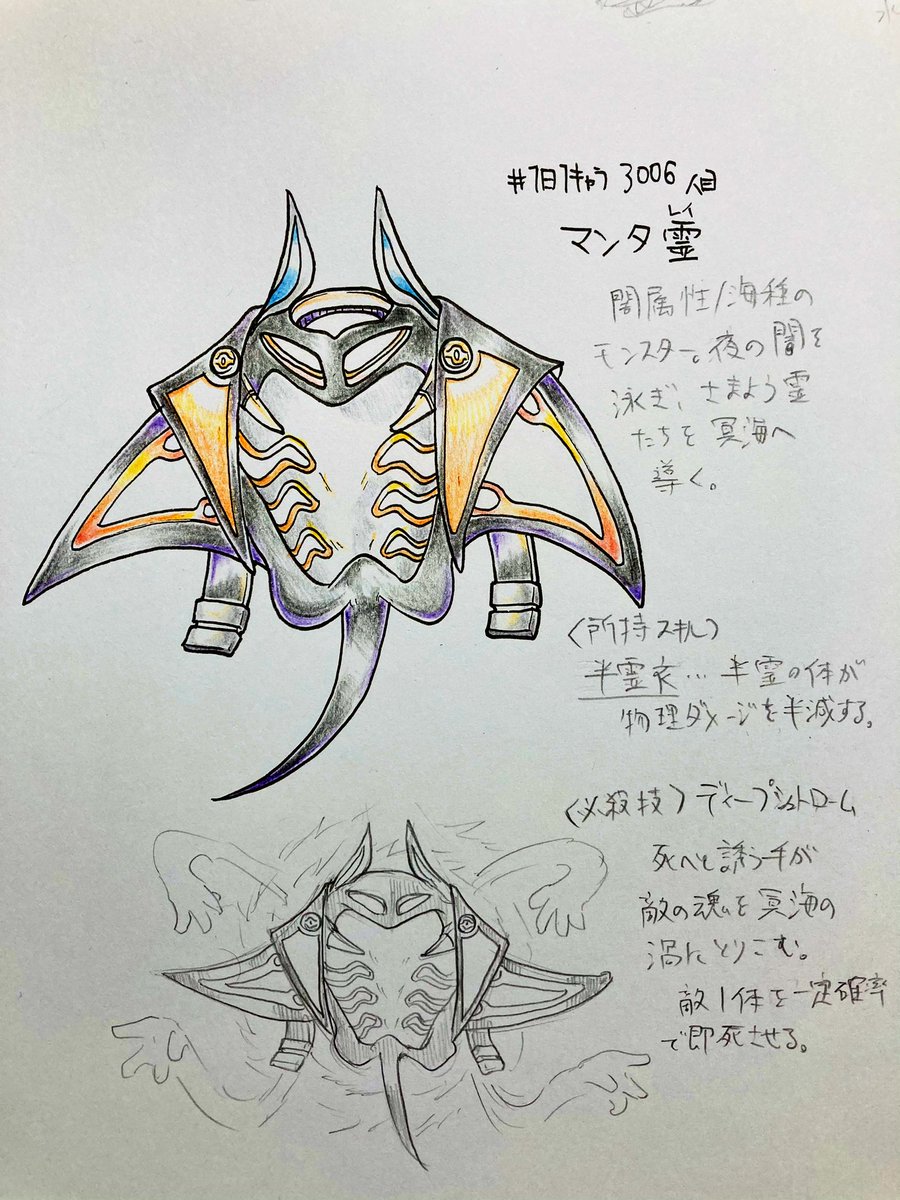 #1日1キャラ 3006人目
レイ
マンタ霊
闇属性/海種の
モンスター。夜の闇を
泳ぎ、さまよう霊
たちを冥海へ
導く。
〈所持スキル〉
半霊衣…半霊の体が
物理ダメージを半減する。
〈必殺技〉ディープシュトローム
死へと誘う手が
敵の魂を冥海の
渦にとりこむ。
敵1体を一定確率
で即死させる。